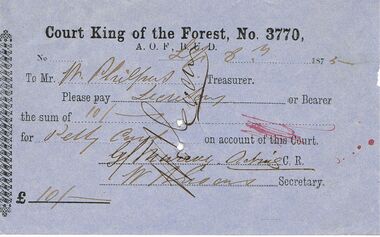 Court King of the Forest, No. 3770,
A. O. F., B. U. D.
No 8 187 5
To Mr. W. Philpott Treasurer.
Please pay Secretary or Bearer
the sum of 10/-
for Petty Cash on account of this Court.
G. Murray C. R.
W Secretary.
£ 10/-